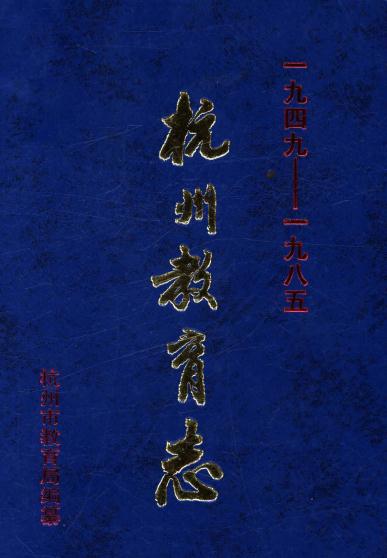 一九四九——一九八五
杭州教育志
杭州市教育局编纂